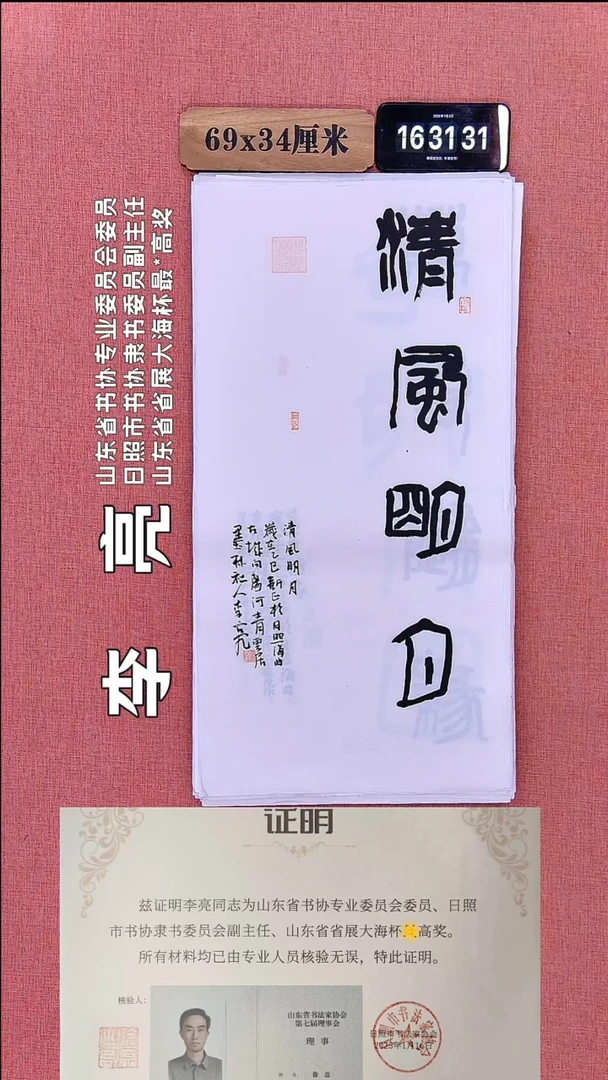 69x34厘米
16 31 31
山东省书协专业委员会委员
日照市书协隶书委员副主任
山东省省展大海杯最*高奖
李亮
清風明月
清風明月
歲在乙巳新正於日照海曲
古城向陽河青雲居
墨林社人李亮
证明
兹证明李亮同志为山东省书协专业委员会委员、日照
市书协隶书委员会副主任、山东省省展大海杯
高奖。
所有材料均已由专业人员核验无误，特此证明。
核验人：
山东省书法家协会
第七届理事会
理事
日照市书法家协会
2025年1月16日